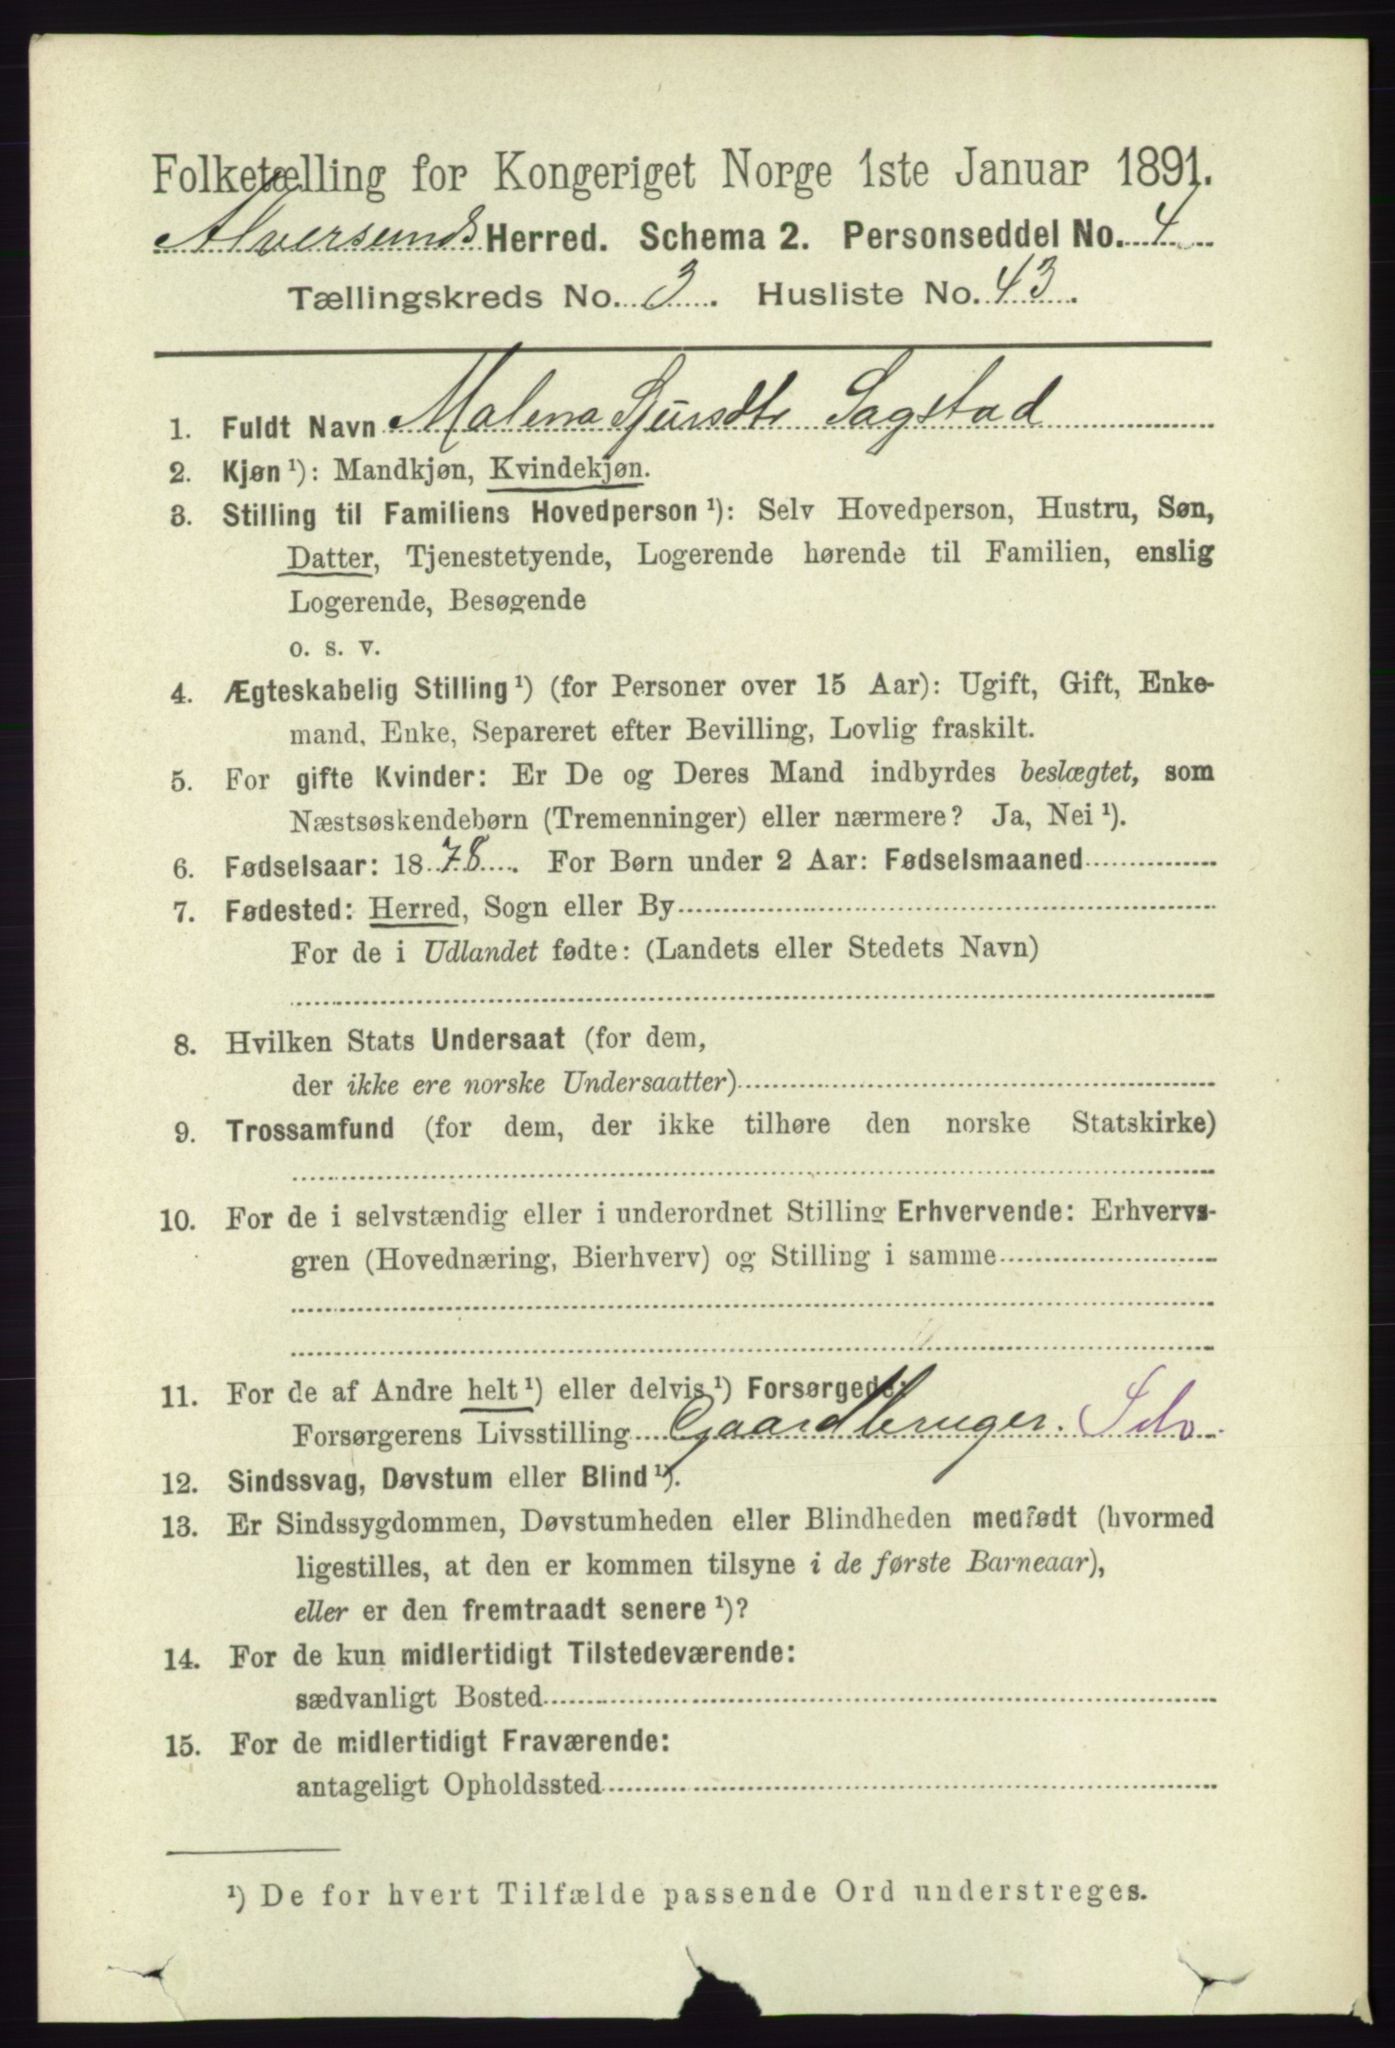 Folketælling for Kongeriget Norge 1ste Januar 1891.
Alversunds Herred. Schema 2. Personseddel No. 4
Tællingskreds No. 3. Husliste No. 43.
1. Fuldt Navn Malena Sjursdtr Sagstad
2. Kjøn ¹): Mandkjøn, Kvindekjøn.
3. Stilling til Familiens Hovedperson ¹): Selv Hovedperson, Hustru, Søn,
Datter, Tjenestetyende, Logerende hørende til Familien, enslig
Logerende, Besøgende
o. s. v.
4. Ægteskabelig Stilling ¹) (for Personer over 15 Aar): Ugift, Gift, Enke-
mand, Enke, Separeret efter Bevilling, Lovlig fraskilt.
5. For gifte Kvinder: Er De og Deres Mand indbyrdes beslægtet, som
Næstsøskendebørn (Tremenninger) eller nærmere? Ja, Nei ¹).
6. Fødselsaar: 1878. For Børn under 2 Aar: Fødselsmaaned
7. Fødested: Herred, Sogn eller By
For de i Udlandet fødte: (Landets eller Stedets Navn)
8. Hvilken Stats Undersaat (for dem,
der ikke ere norske Undersaatter)
9. Trossamfund (for dem, der ikke tilhøre den norske Statskirke)
10. For de i selvstændig eller i underordnet Stilling Erhvervende: Erhvervs-
gren (Hovednæring, Bierhverv) og Stilling i samme
11. For de af Andre helt ¹) eller delvis ¹) Forsørgede:
Forsørgerens Livsstilling Gaardbruger. Selv
12. Sindssvag, Døvstum eller Blind ¹).
13. Er Sindssygdommen, Døvstumheden eller Blindheden medfødt (hvormed
ligestilles, at den er kommen tilsyne i de første Barneaar),
eller er den fremtraadt senere ¹)?
14. For de kun midlertidigt Tilstedeværende:
sædvanligt Bosted
15. For de midlertidigt Fraværende:
antageligt Opholdssted
¹) De for hvert Tilfælde passende Ord understreges.